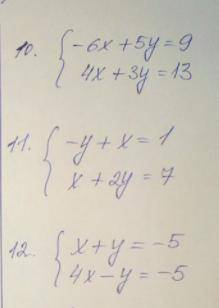 10. { -6x + 5y = 9
4x + 3y = 13
11. { -y + x = 1
x + 2y = 7
12. { x + y = -5
4x - y = -5